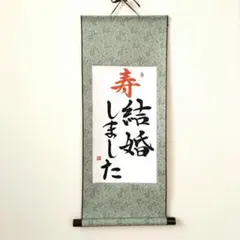 寿
結婚
しました